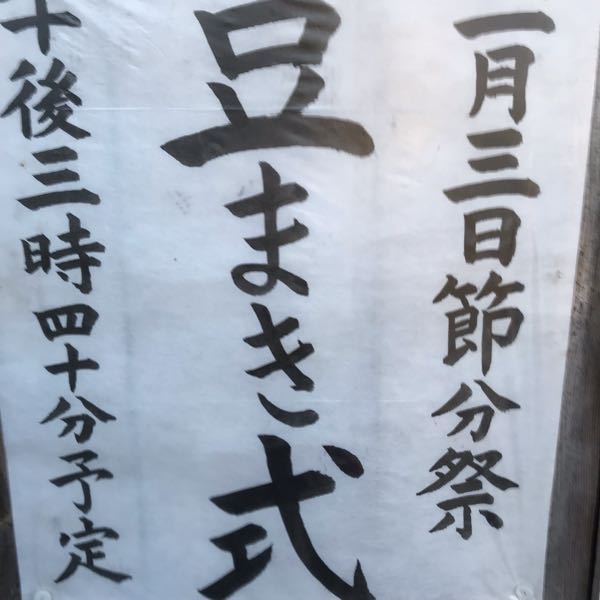 一月三日節分祭
豆まき式
午後三時四十分予定